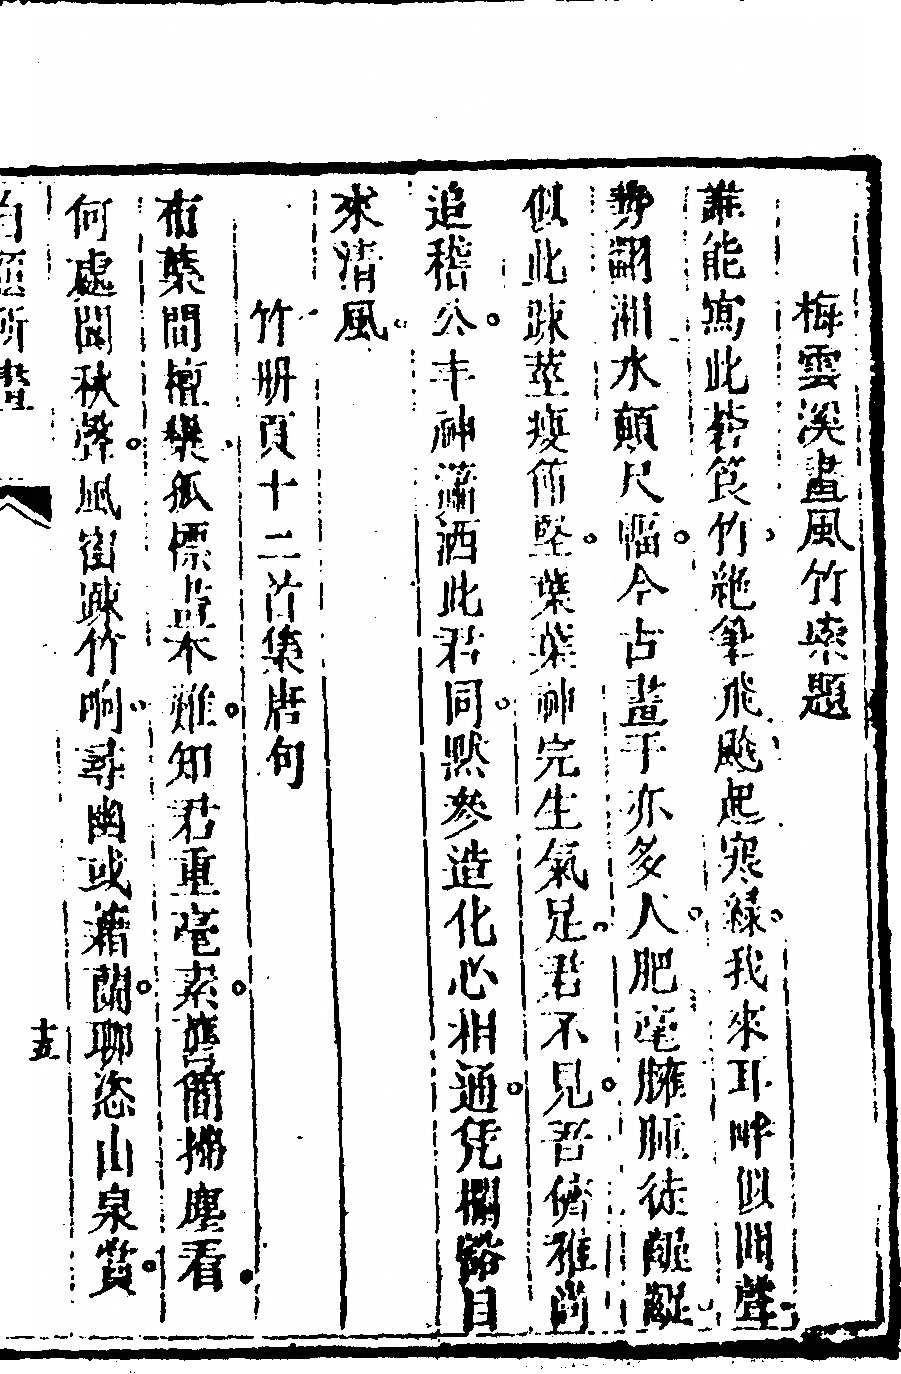 梅雲溪畫風竹索題
誰能寫此蒼筤竹絕筆飛颸起寒綠我來耳畔似聞聲
勢翻湘水顛尺幅今古畫手亦多人肥毫臃腫徒齷齪
似此踈莖瘦節堅葉葉神完生氣足君不見吾儕雅尚
追稽公丰神瀟洒此君同默參造化心相通凭欄豁目
來清風
竹册頁十二首集唐句
布葉間檀欒孤標畫不難知君重毫素舊簡拂塵看
何處聞秋聲風窗踈竹响尋幽或藉蘭聊恣山泉賞
十五